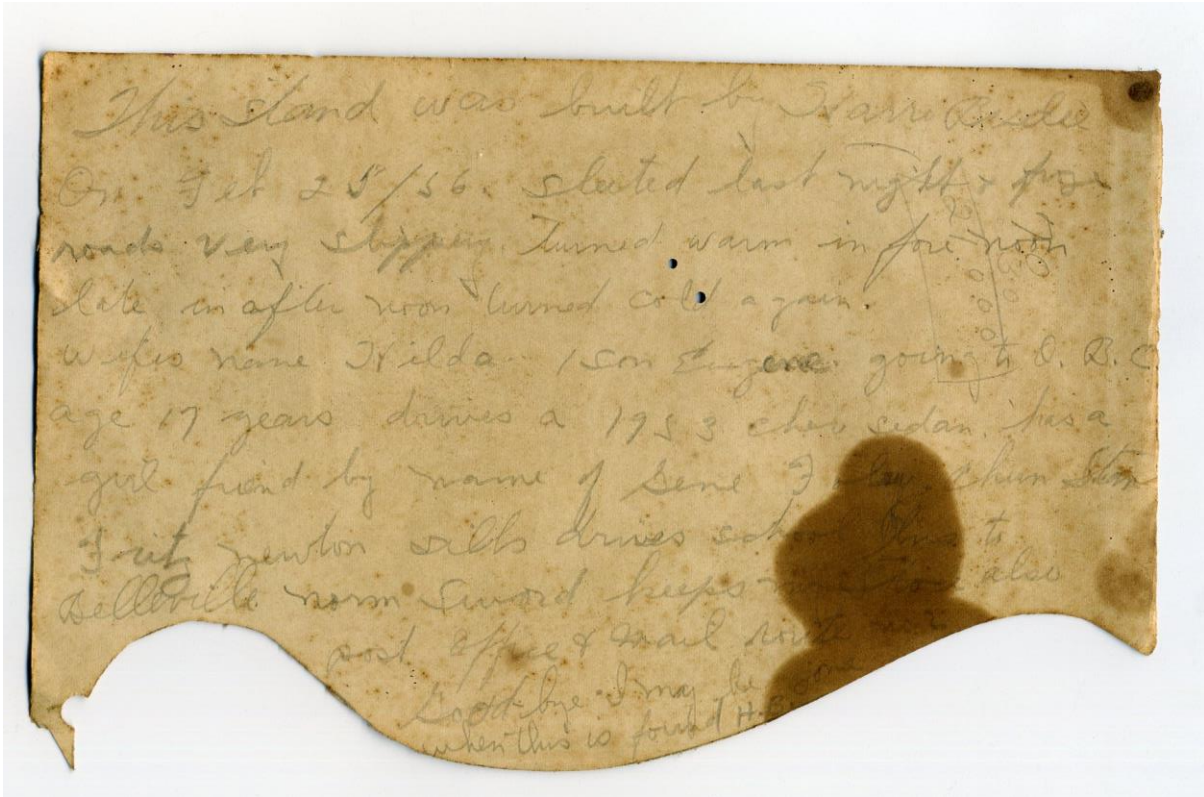 This stand was built by Harri
On Feb 25/56. sleeted last night &
roads very slippery. Turned warm in fore noon
late in after noon turned cold again.
wifes name Hilda 1 son Eugene going to O. B. C
age 17 years drives a 1953 chev sedan. has a
girl friend by name of Gene
newton sills drives school bus to
Belleville norm Sword keeps also
post office & mail route
Good-bye I may be gone
when this is found H.